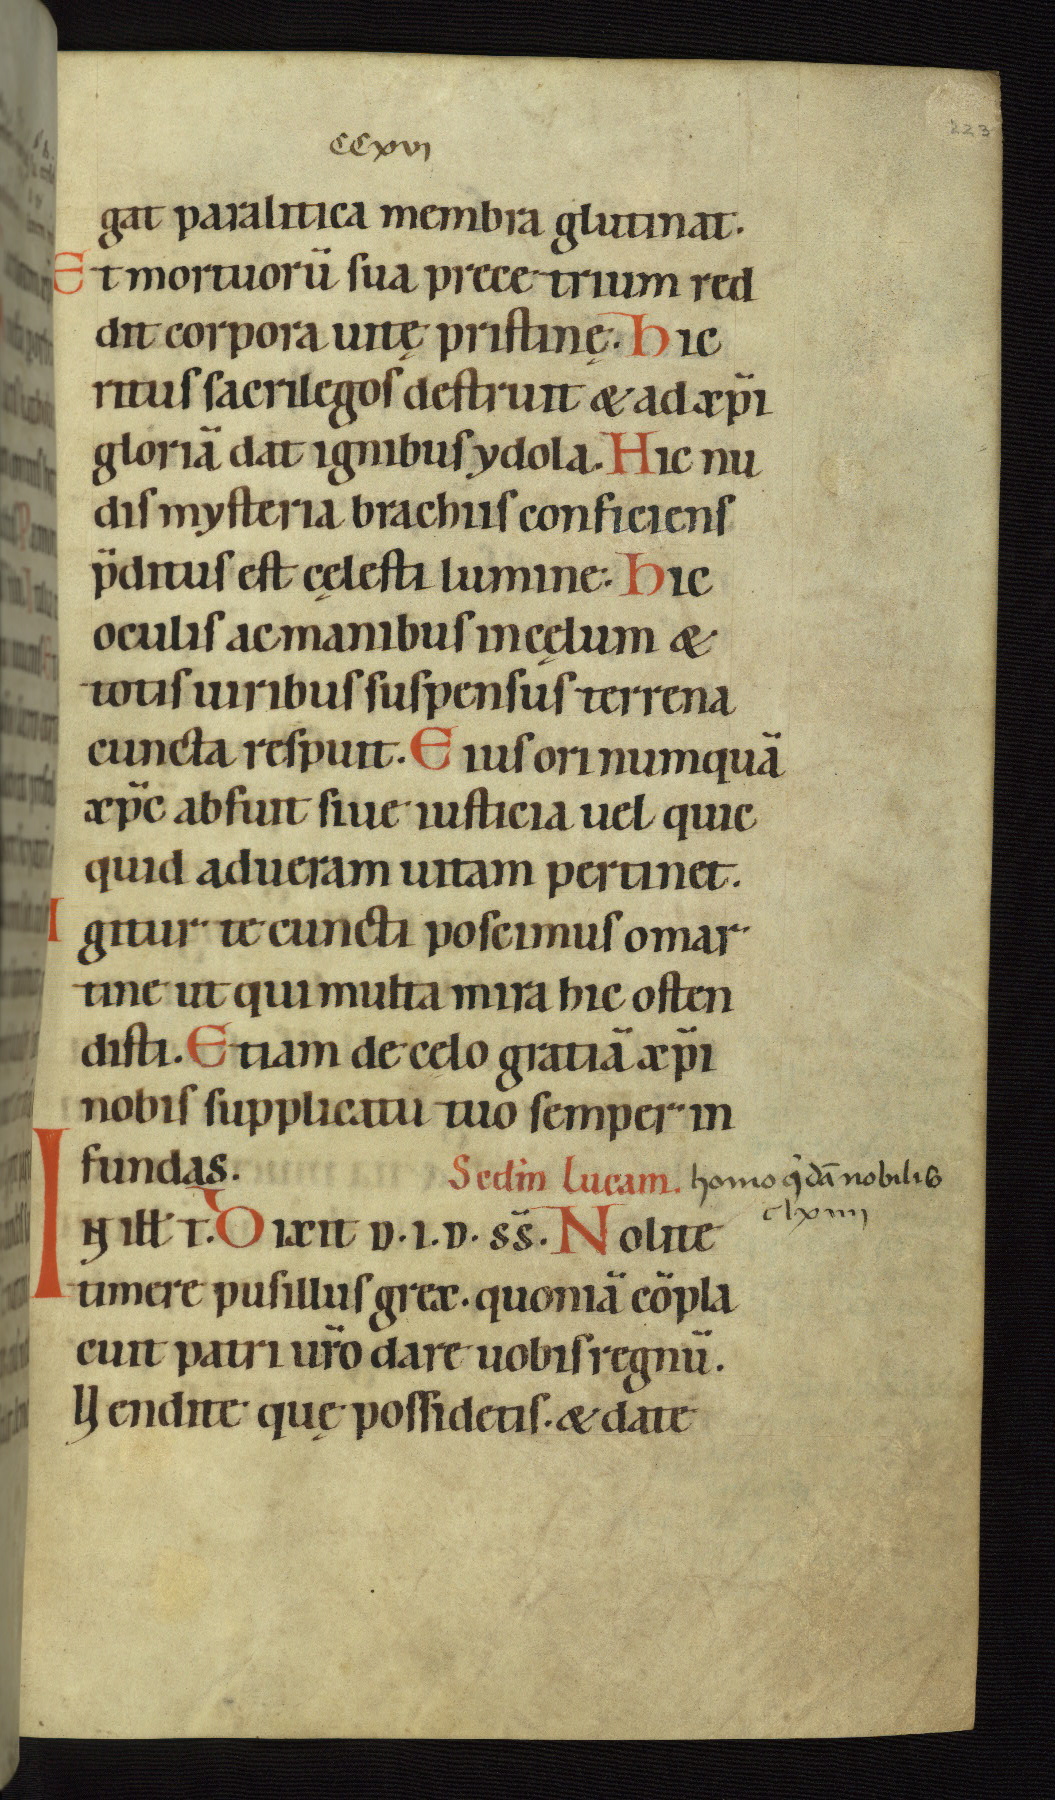 CCxvi
223
gat paralitica membra glutinat.
Et mortuorū sua prece trium red
dit corpora uitę pristinę. Hic
ritus sacrilegos destruit & ad xp̄i
gloriā dat ignibus ydola. Hic nu
dis mysteria brachiis conficiens
p̄ditus est cęlesti lumine. Hic
oculis ac manibus in cęlum &
totis uiribus suspensus terrena
cuncta respuit. Eius ori numquā
xp̄c abfuit siue iusticia uel quic
quid ad ueram uitam pertinet.
Igitur te cuncti poscimus o mar
tine ut qui multa mira hic osten
disti. Etiam de celo gratiā xp̄i
nobis supplicatu tuo semper in
fundas. Sed̄ in Lucam. homo q̄dā nobilis
clxiiii
IN ill̄ t̄. Dixit d. i. d. ss̄. Nolite
timere pusillus grex. quoniā cōpla
cuit patri ur̄o dare uobis regnū.
Vendite quę possidetis. & date